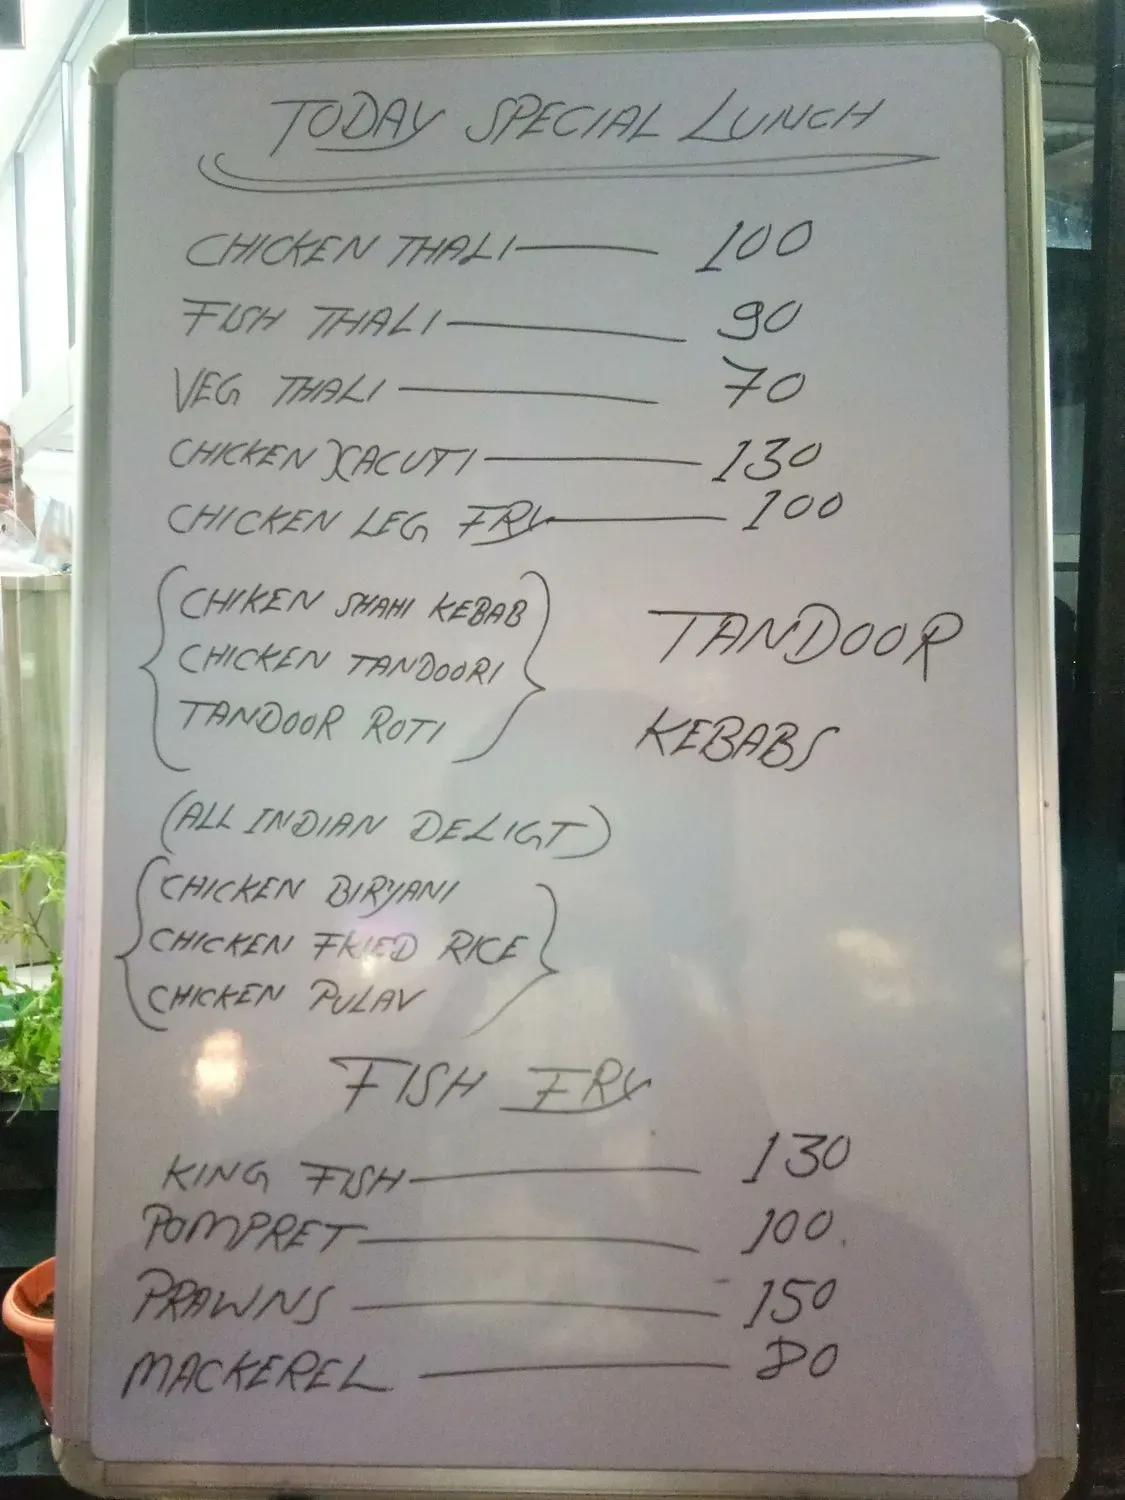 TODAY SPECIAL LUNCH
CHICKEN THALI — 100
FISH THALI — 90
VEG THALI — 70
CHICKEN XACUTI — 130
CHICKEN LEG FRY — 100
CHIKEN SHAHI KEBAB
CHICKEN TANDOORI
TANDOOR ROTI
TANDOOR
KEBABS
(ALL INDIAN DELIGT)
CHICKEN BIRYANI
CHICKEN FRIED RICE
CHICKEN PULAV
FISH FRY
KING FISH — 130
POMPRET — 100
PRAWNS — 150
MACKEREL — 80